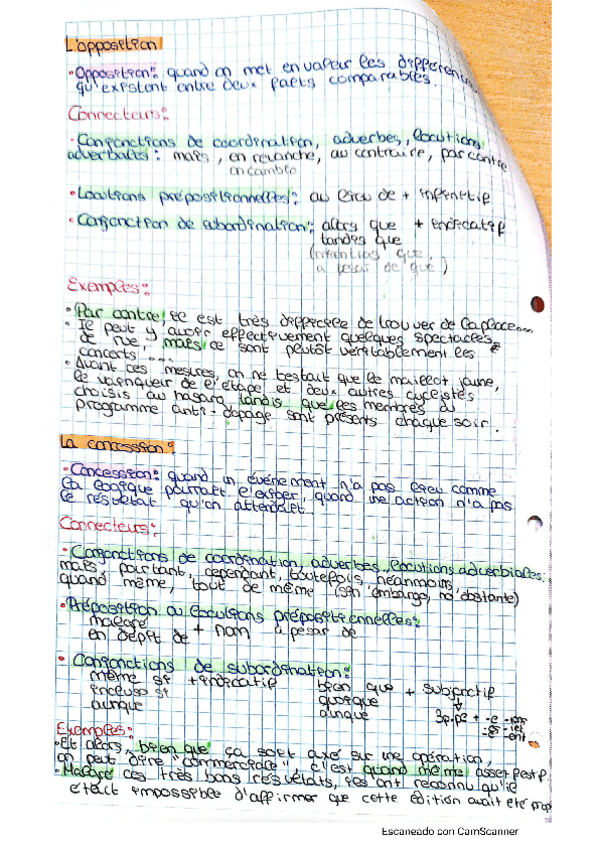 L'opposition
• Opposition: quand on met en valeur les différen
qu'existent entre deux faits comparables.
Connecteurs:
• Conjonctions de coordination, adverbes, locutions
adverbiales: mais, en revanche, au contraire, par contre
en cambio
• Locutions prépositionnelles: au lieu de + infinitif
• Conjonction de subordination: alors que + indicatif
tandis que
(mientras que,
a pesar de que)
Exemples:
• Par contre, il est très difficile de trouver de la place...
• Il peut y avoir effectivement quelques spectacles
de rue, mais ce sont plutôt véritablement les
concerts ....
• Avant ces mesures, on ne testait que le maillot jaune,
le vainqueur de l'étape et deux autres cyclistes
choisis au hasard, tandis que les membres du
programme anti-dopage sont présents chaque soir.
La concession:
• Concession: quand un événement n'a pas lieu comme
la logique pourrait l'exiger, quand une action n'a pas
le résultat qu'on attendait.
Connecteurs:
• Conjonctions de coordination, adverbes, locutions adverbiales:
mais, pourtant, cependant, toutefois, néanmoins,
quand même, tout de même (sin embargo, no obstante)
• Préposition ou locutions prépositionnelles:
malgré
en dépit de + nom a pesar de
• Conjonctions de subordination:
même si + indicatif bien que + subjonctif
incluso si quoique
aunque aunque 3p.pl + -e -ions
-es -iez
-e -ent
Exemples:
• Et alors, bien que ça soit axé sur une opération,
on peut dire "commerciale" c'est quand même assez festif.
• Malgré ces très bons résultats, ils ont reconnu qu'il
était impossible d'affirmer que cette édition avait été prop
Escaneado con CamScanner